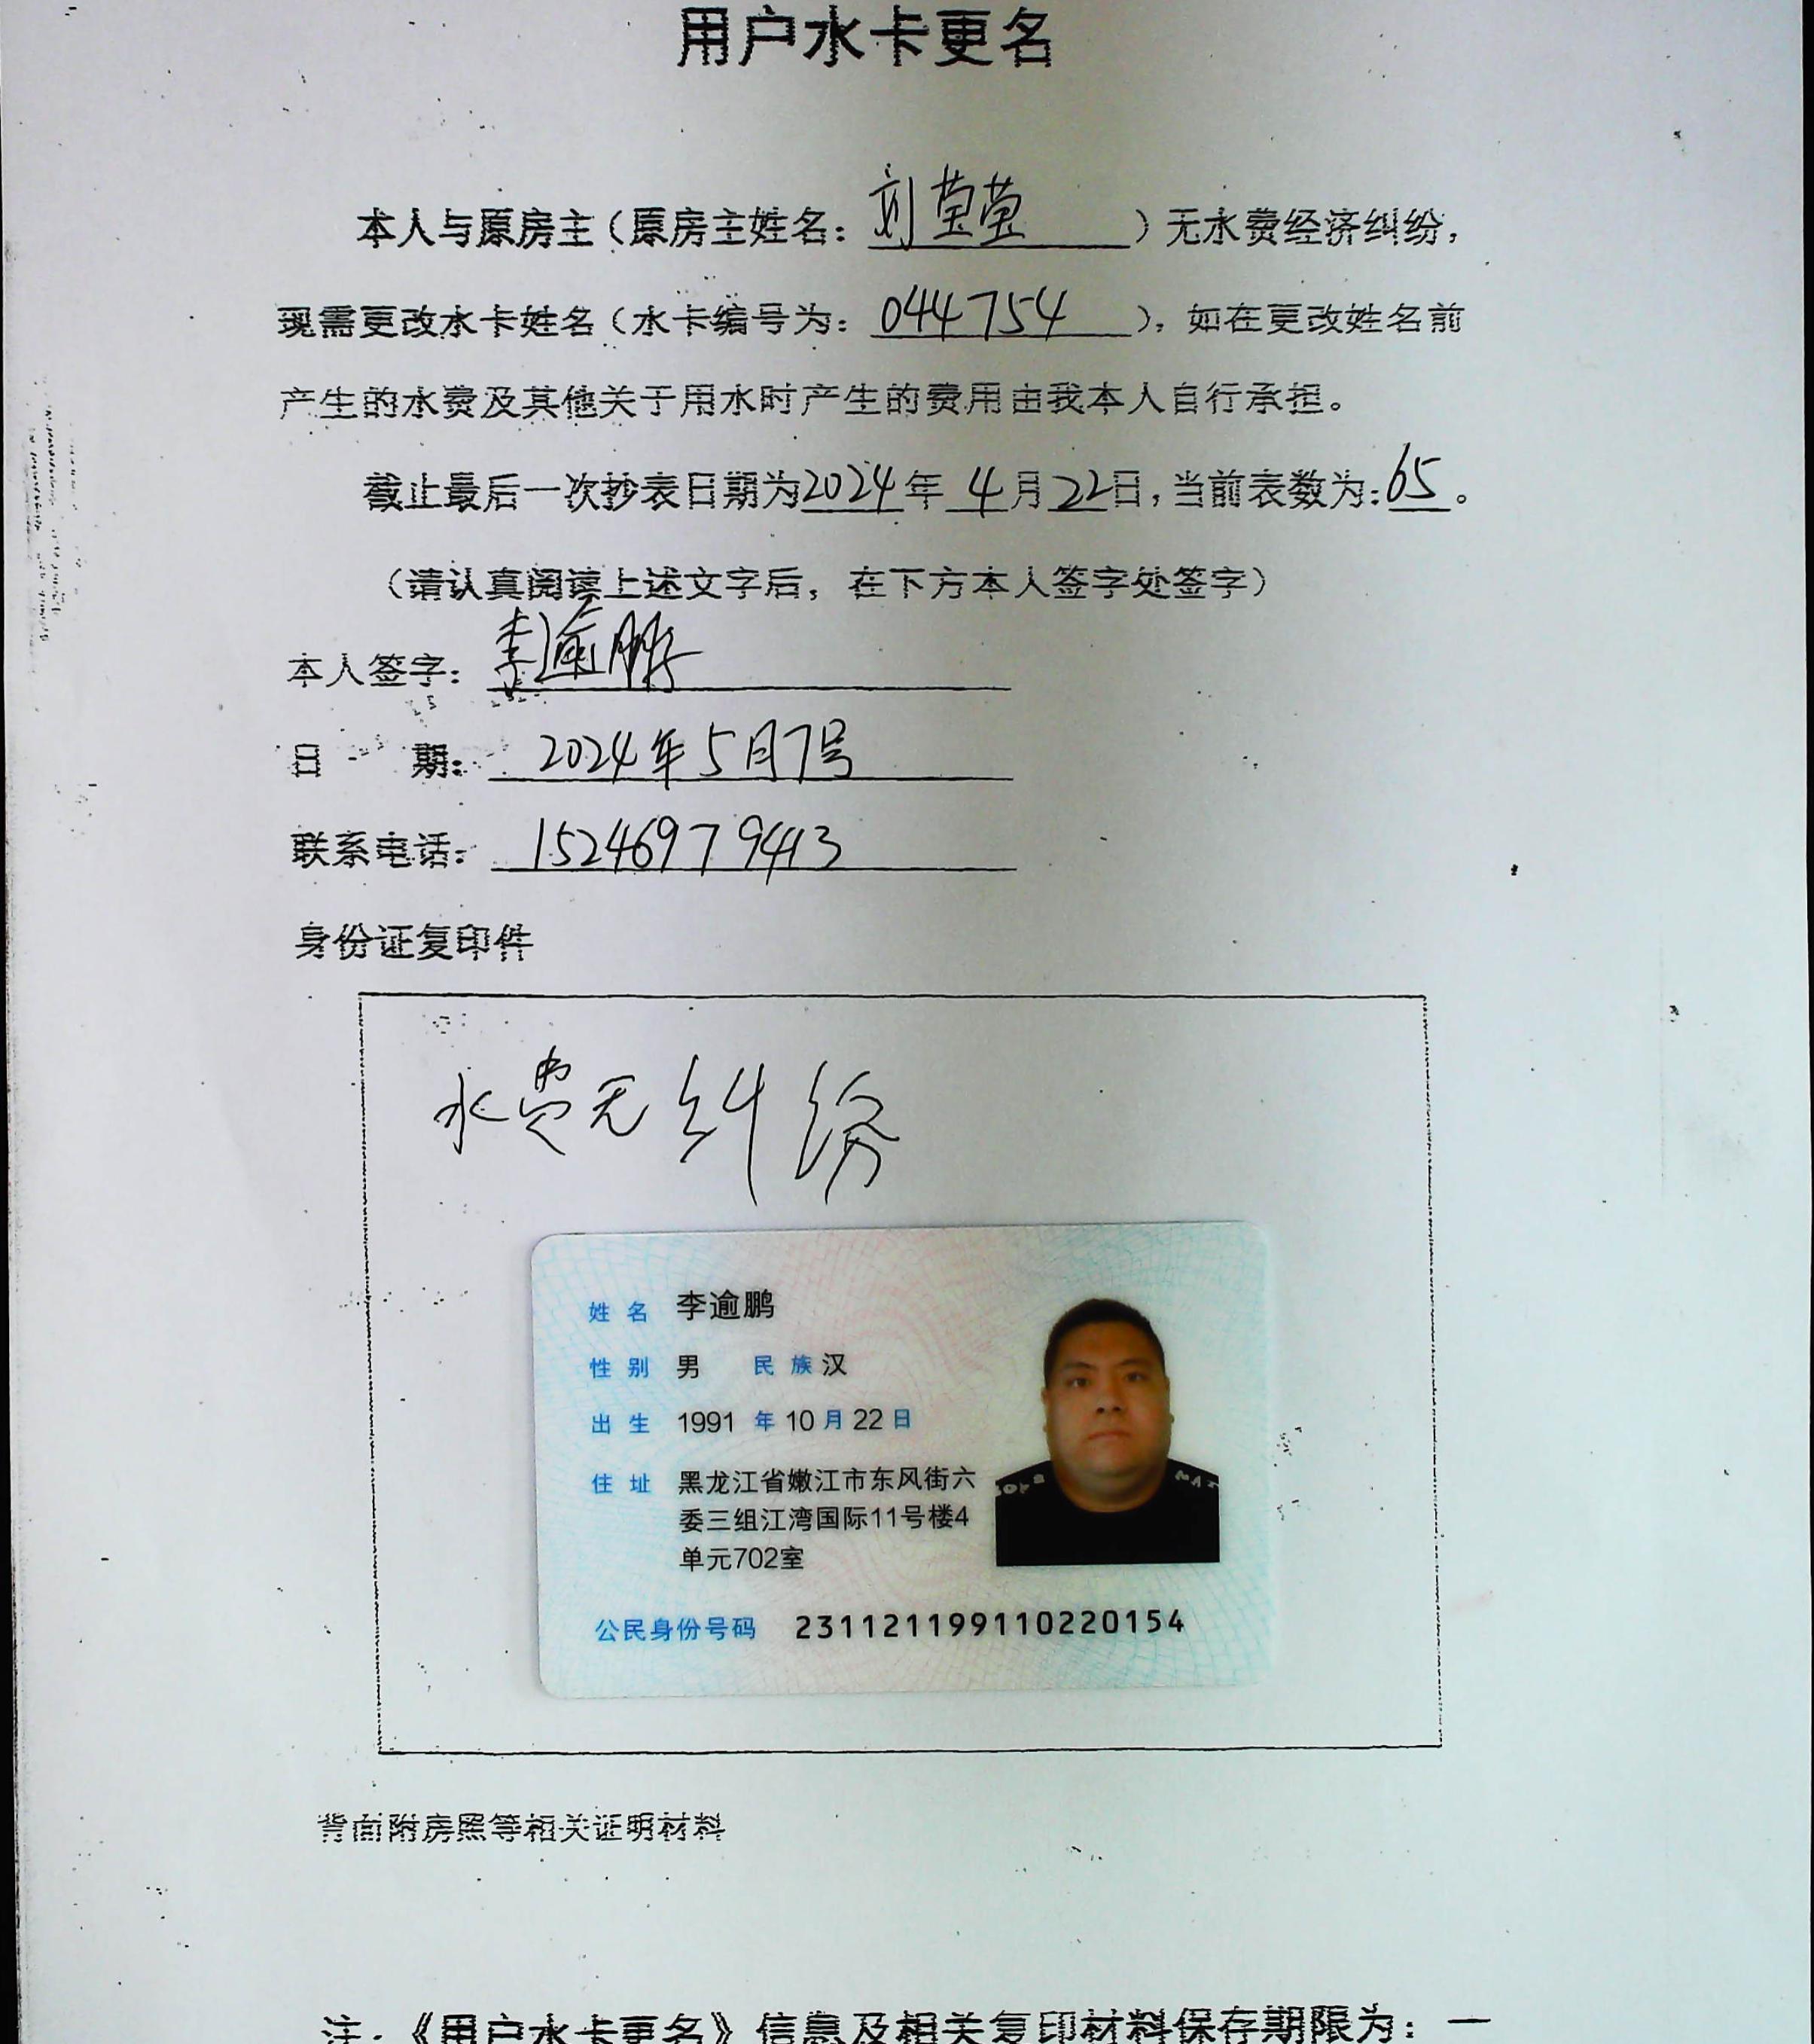 用户水卡更名
本人与原房主（原房主姓名：刘莹莹）无水费经济纠纷，
现需更改水卡姓名（水卡编号为：044754），如在更改姓名前
产生的水费及其他关于用水时产生的费用由我本人自行承担。
截止最后一次抄表日期为2024年4月22日，当前表数为：65。
（请认真阅读上述文字后，在下方本人签字处签字）
本人签字：李逾鹏
日期：2024年5月7号
联系电话：15246979413
身份证复印件
水费无纠纷
姓名 李逾鹏
性别 男 民族 汉
出生 1991年10月22日
住址 黑龙江省嫩江市东风街六
委三组江湾国际11号楼4
单元702室
公民身份号码 231121199110220154
背面附房照等相关证明材料
注：《用户水卡更名》信息及相关复印材料保存期限为：一